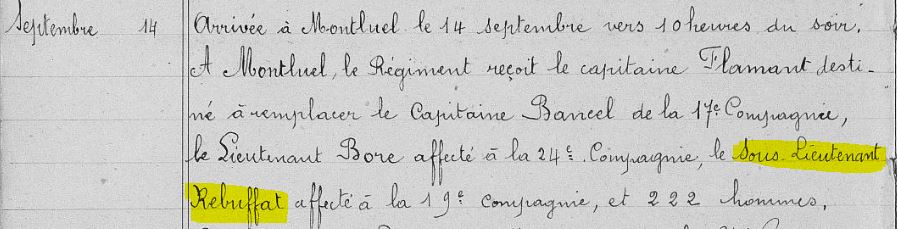 Septembre 14 Arrivée à Montluel le 14 septembre vers 10 heures du soir.
A Montluel, le Régiment reçoit le capitaine Flamant desti-
né à remplacer le Capitaine Bancel de la 17e Compagnie,
le Lieutenant Bore affecté à la 24e Compagnie, le Sous-Lieutenant
Rebuffat affecté à la 19e compagnie, et 222 hommes.